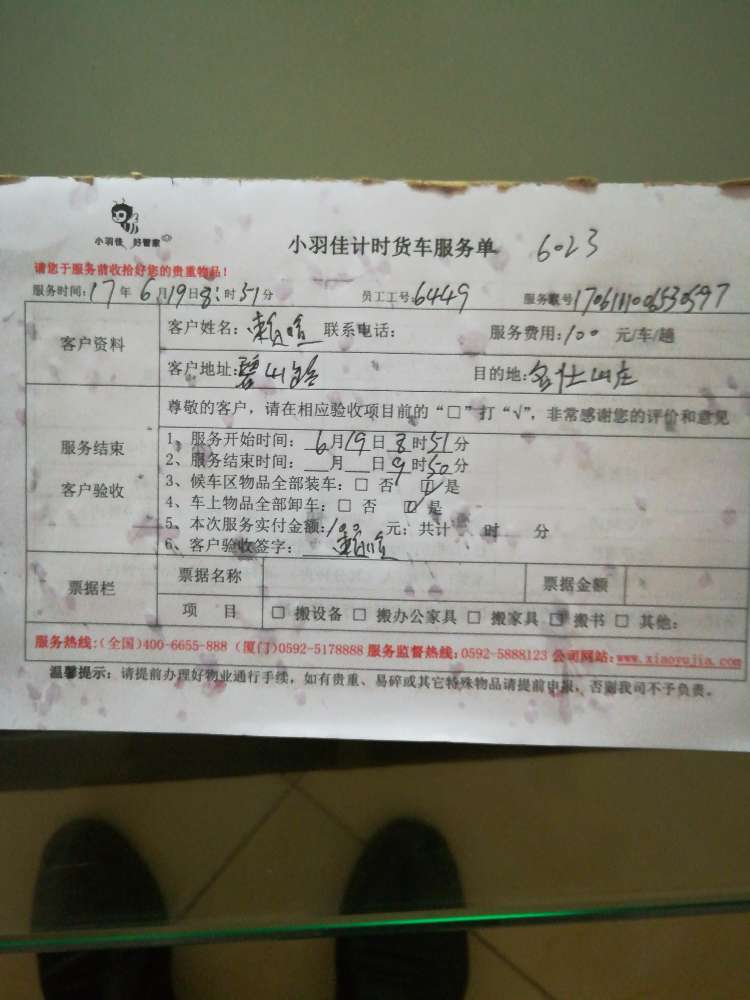 小羽佳 好管家
小羽佳计时货车服务单 6023
请您于服务前收拾好您的贵重物品！
服务时间：17年6月19日8时51分 员工工号：6449 服务账号
客户资料
客户姓名：赖 联系电话： 服务费用：100 元/车/趟
客户地址：碧山路 目的地：名仕山庄
服务结束
客户验收
尊敬的客户，请在相应验收项目前的“□”打“√”，非常感谢您的评价和意见
1、服务开始时间：6月19日8时51分
2、服务结束时间：__月__日9时50分
3、候车区物品全部装车：□ 否 ☑ 是
4、车上物品全部卸车：□ 否 ☑ 是
5、本次服务实付金额：100元；共计 时 分
6、客户验收签字：赖
票据栏
票据名称 票据金额
项 目 □ 搬设备 □ 搬办公家具 □ 搬家具 □ 搬书 □ 其他：
服务热线：（全国）400-6655-888（厦门）0592-5178888 服务监督热线：0592-5888123 公司网站：www.xiaoyujia.com
温馨提示：请提前办理好物业通行手续，如有贵重、易碎或其它特殊物品请提前申报，否则我司不予负责。